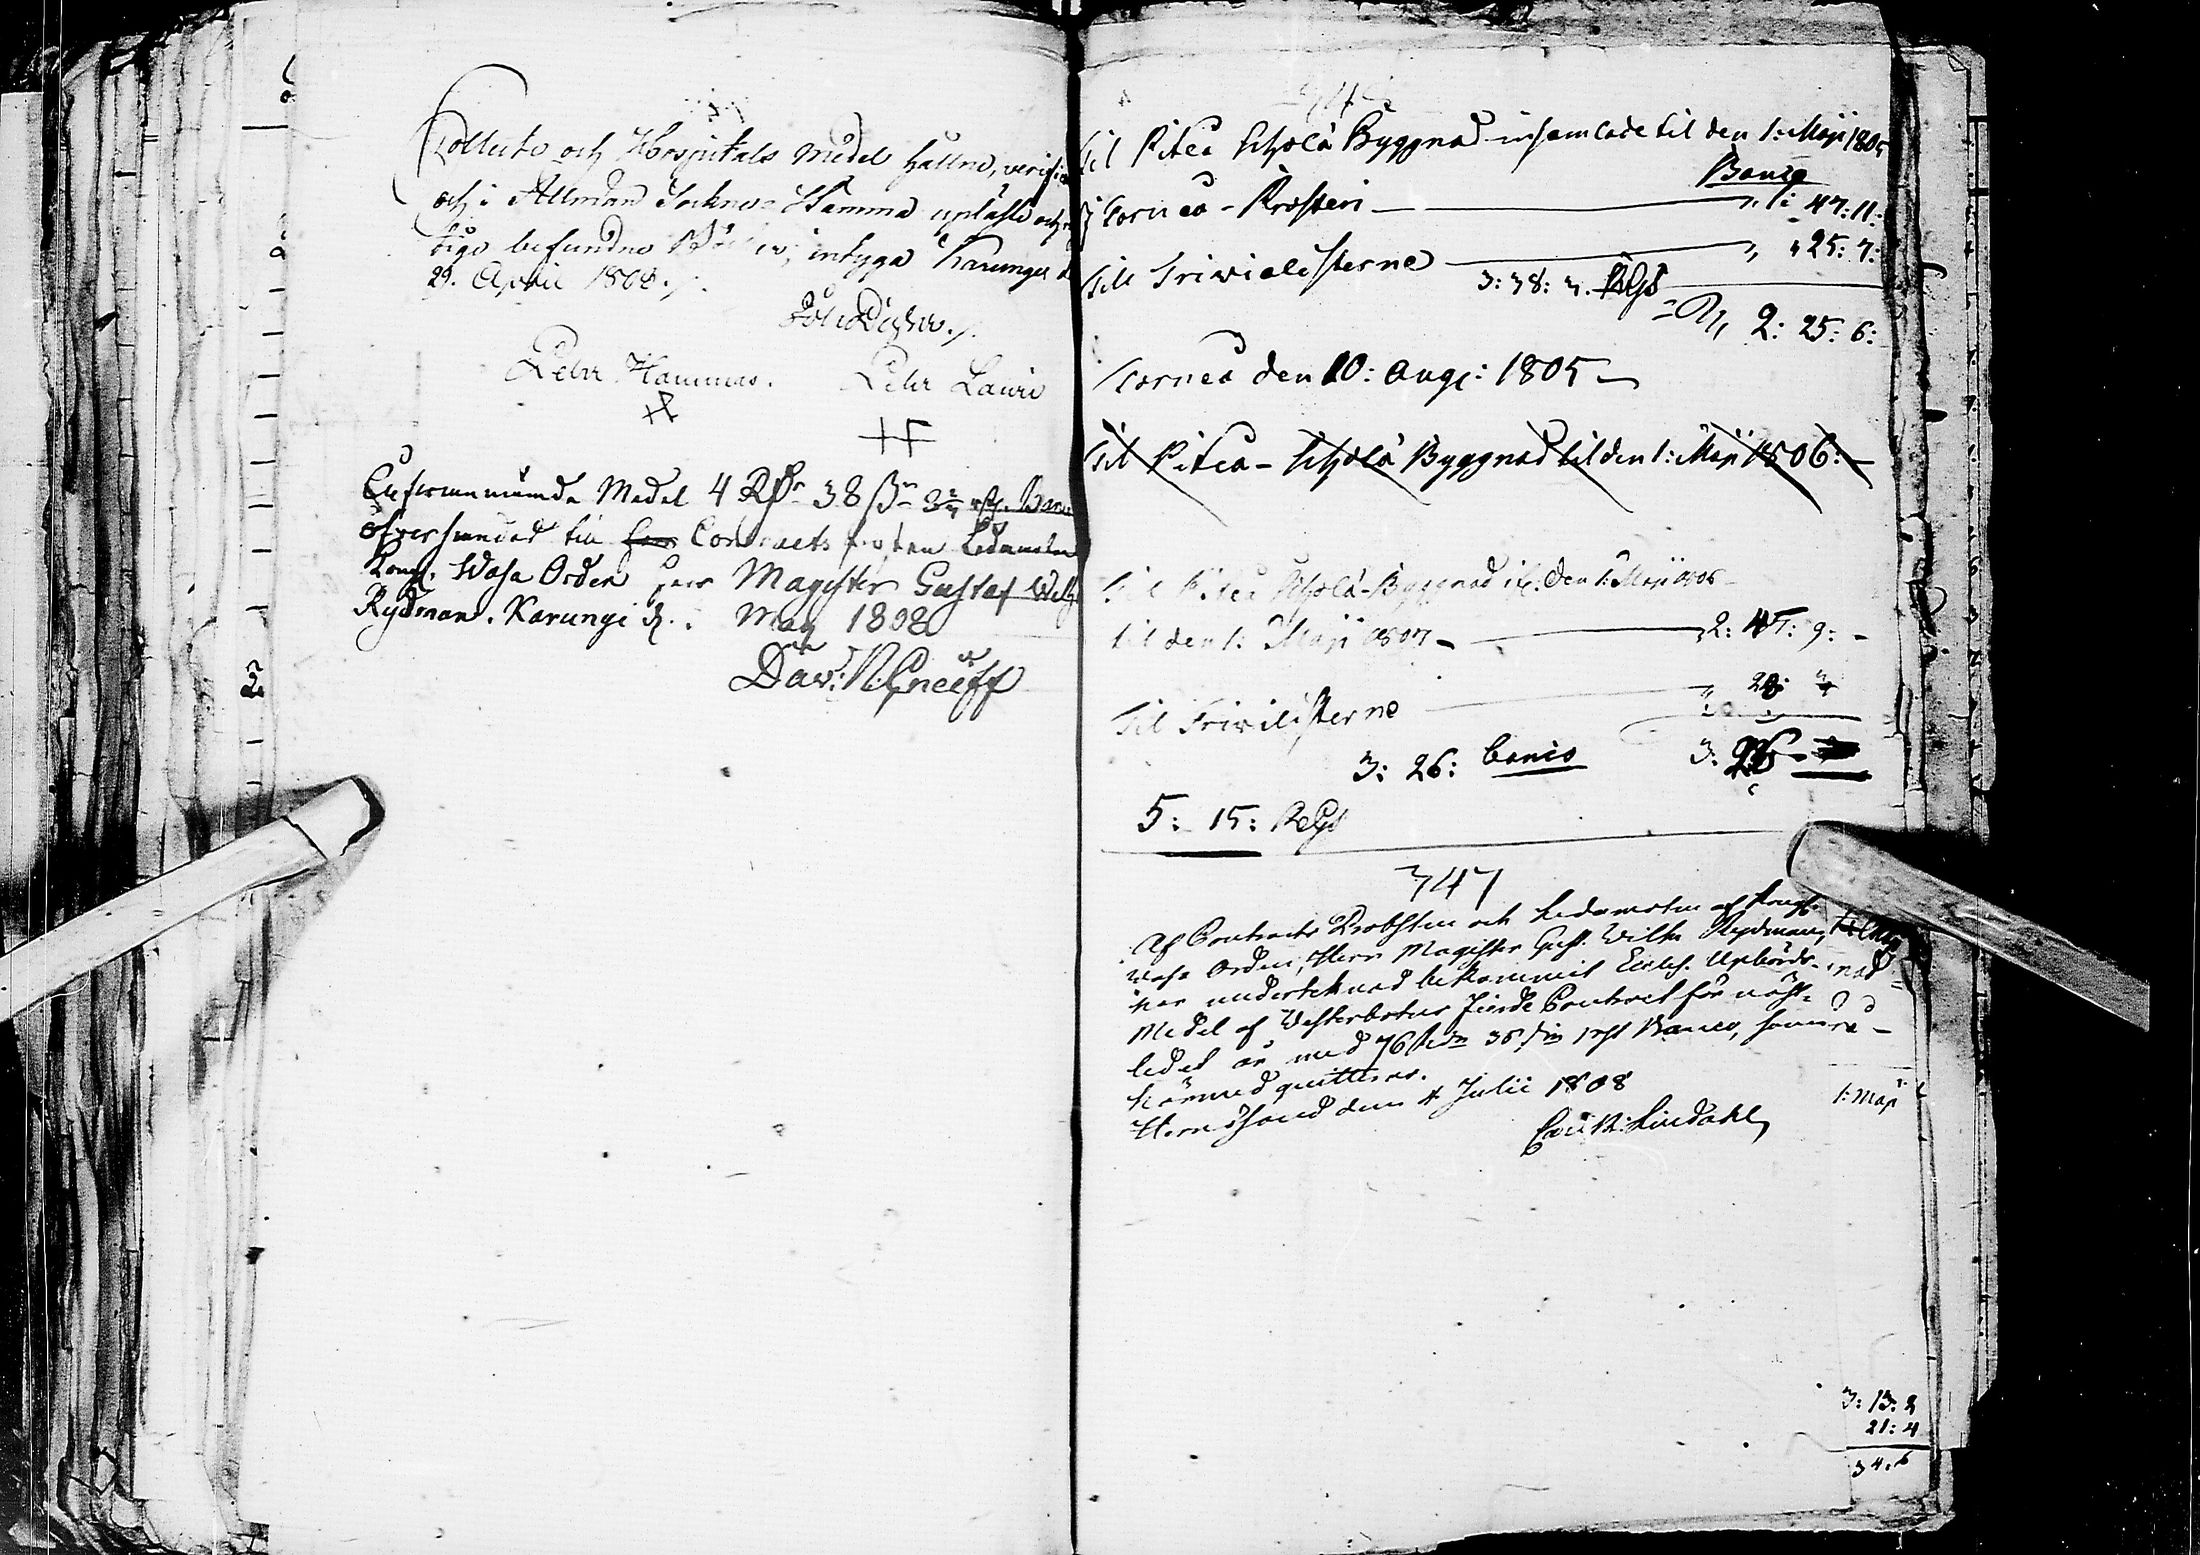 Collecte och Hospitals Medel hallne,
och i Allmän Sockne-Stämma upläste och
tige befundne Böcker, intyga Karungi d
29. April 1808./.
Pehr Hammas. Pehr Lauri
Ofvannämnde Medel 4 Rdr 38 ß
öfversändad till Contracts Prosten Ledamoten
Kongl. Wasa Orden Herr Magister Gustaf Wilh
Rydman. Karungi d. Maij 1808
Dav: N: Gneiff
Til Piteå Schola Byggnad insamlade til den 1: Maji 1805
Banco
i Torneå - Prosteri 1: 47: 11:
Till Trivialisterne " 25: 7:
3: 38: 3. RGs
2: 25: 6:
Torneå den 10: Aug: 1805
Til Piteå - Schola Byggnad til den 1: Maji 1806:
Til Piteå Schola-Byggnad if: den 1: Maji 1806
til den 1: Maji 1807 - 2: 45: 9: -
Til Trivilisterne
3: 26: banco
5: 15: RGs
347
Af Contracts Probsten och Ledamoten af Kongl.
Wasa Orden, Herr Magister Gust. Wilh. Rydman,
har underteknad bekommit Eccles. Upbörds-
Medel af Westerbotns Fierde Contract för näst-
ledet år med 76 Rdr 36 s Banco, som
härmed quitteras.
Hernösand den 4 Julii 1808
Lindahl
1: Maji
3: 13: 2
21: 4